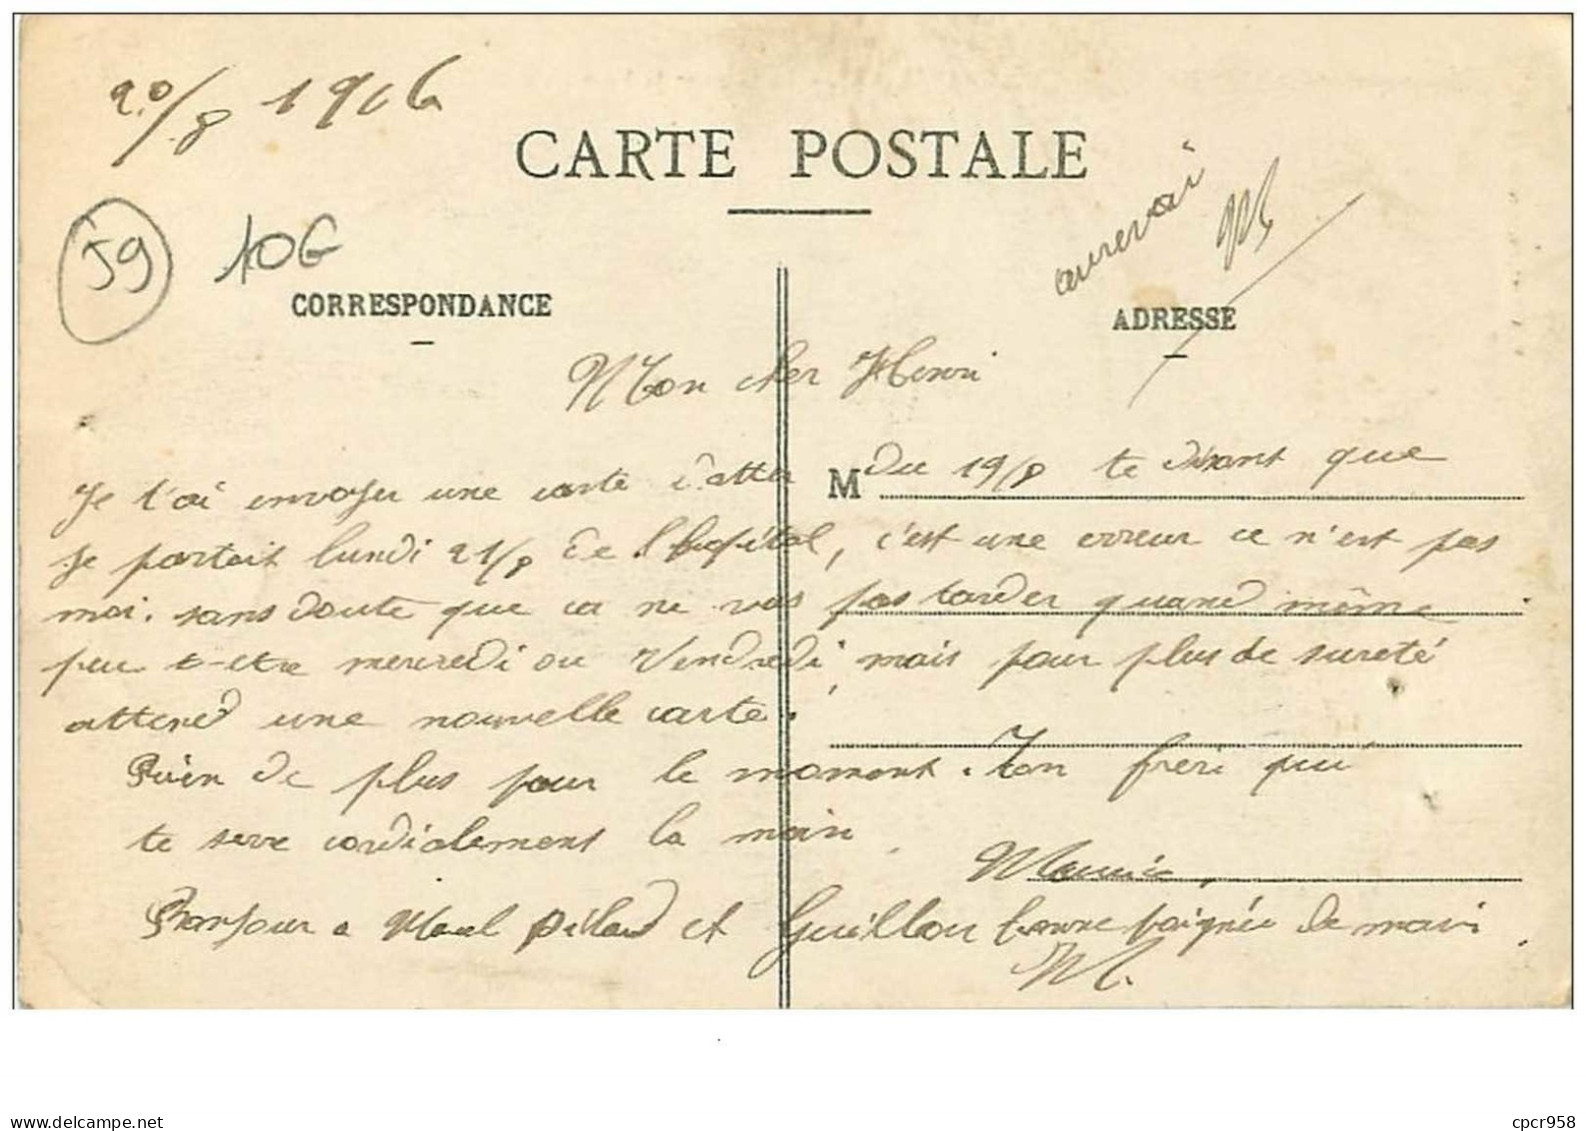 20/8 1916
CARTE POSTALE
aurevoir
M
59
10G
CORRESPONDANCE
ADRESSE
Mon cher Henri
Je t'ai envoyer une carte datter M du 19/8 te disant que
je partait lundi 21/8 de l'hopital, c'est une erreur ce n'est pas
moi. sans doute que ca ne vas pas tarder quand même
peu t-etre mercredi ou Vendredi, mais pour plus de sureté
attend une nouvelle carte.
Rien de plus pour le moment. Ton frere qui
te serre cordialement la main
Maurice
Bonjour a et Guillou bonne poignée de main.
M.
www.delcampe.net
cpcr958